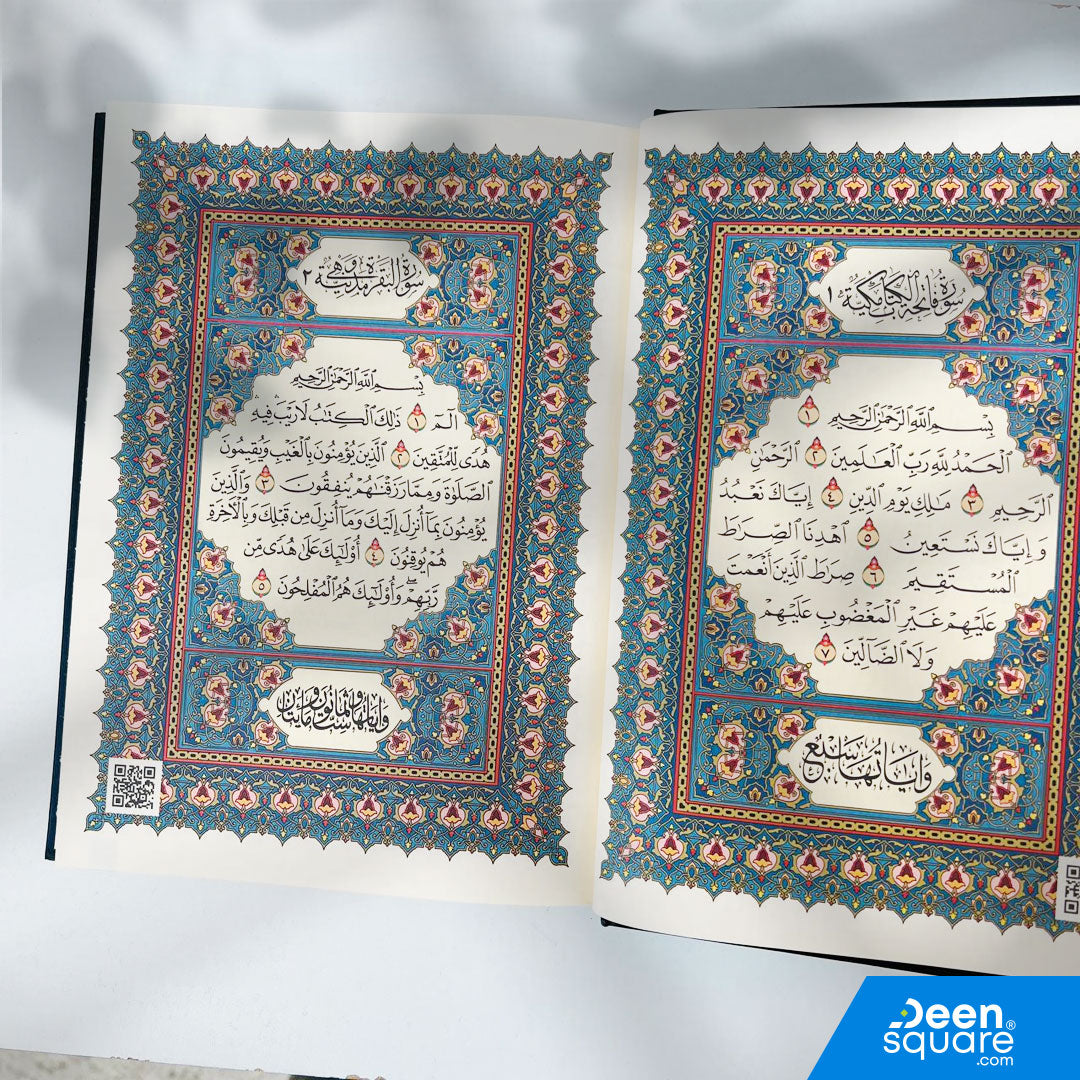 سورة فاتحة الكتاب مكية ١
بِسْمِ ٱللَّهِ ٱلرَّحْمَٰنِ ٱلرَّحِيمِ ١
ٱلْحَمْدُ لِلَّهِ رَبِّ ٱلْعَٰلَمِينَ ٢ ٱلرَّحْمَٰنِ
ٱلرَّحِيمِ ٣ مَٰلِكِ يَوْمِ ٱلدِّينِ ٤ إِيَّاكَ نَعْبُدُ
وَإِيَّاكَ نَسْتَعِينُ ٥ ٱهْدِنَا ٱلصِّرَٰطَ
ٱلْمُسْتَقِيمَ ٦ صِرَٰطَ ٱلَّذِينَ أَنْعَمْتَ
عَلَيْهِمْ غَيْرِ ٱلْمَغْضُوبِ عَلَيْهِمْ
وَلَا ٱلضَّآلِّينَ ٧
وَآيَاتُهَا سَبْعٌ
سورة البقرة وهي مدنية ٢
بِسْمِ ٱللَّهِ ٱلرَّحْمَٰنِ ٱلرَّحِيمِ
الٓمٓ ١ ذَٰلِكَ ٱلْكِتَٰبُ لَا رَيْبَ ۛ فِيهِ ۛ
هُدًى لِّلْمُتَّقِينَ ٢ ٱلَّذِينَ يُؤْمِنُونَ بِٱلْغَيْبِ وَيُقِيمُونَ
ٱلصَّلَوٰةَ وَمِمَّا رَزَقْنَٰهُمْ يُنفِقُونَ ٣ وَٱلَّذِينَ
يُؤْمِنُونَ بِمَآ أُنزِلَ إِلَيْكَ وَمَآ أُنزِلَ مِن قَبْلِكَ وَبِٱلْءَاخِرَةِ
هُمْ يُوقِنُونَ ٤ أُو۟لَٰٓئِكَ عَلَىٰ هُدًى مِّن
رَّبِّهِمْ ۖ وَأُو۟لَٰٓئِكَ هُمُ ٱلْمُفْلِحُونَ ٥
وآياتها ست وثمانون ومائتان
Deen®
square
.com